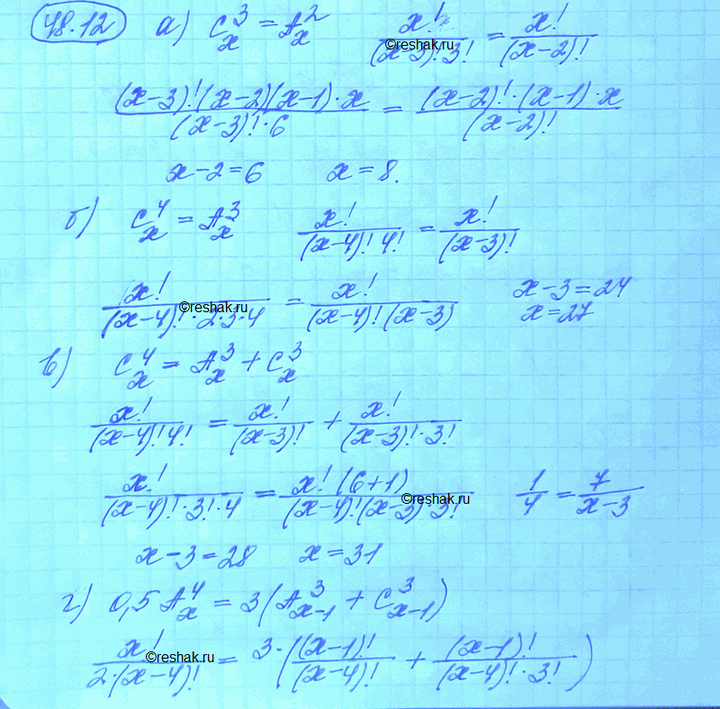 48.12 а) C_x^3 = A_x^2   x!/((x-3)!·3!) = x!/(x-2)!
((x-3)!(x-2)(x-1)·x)/((x-3)!·6) = ((x-2)!·(x-1)·x)/(x-2)!
x-2=6   x=8.
б) C_x^4 = A_x^3   x!/((x-4)!4!) = x!/(x-3)!
x!/((x-4)!·2·3·4) = x!/((x-4)!(x-3))   x-3=24
x=27
в) C_x^4 = A_x^3 + C_x^3
x!/((x-4)!4!) = x!/(x-3)! + x!/((x-3)!·3!)
x!/((x-4)!·3!·4) = x!(6+1)/((x-4)!(x-3)·3!)   1/4 = 7/(x-3)
x-3=28   x=31
г) 0,5A_x^4 = 3(A_{x-1}^3 + C_{x-1}^3)
x!/(2·(x-4)!) = 3·((x-1)!/(x-4)! + (x-1)!/((x-4)!·3!))
©reshak.ru
©reshak.ru
©reshak.ru
©reshak.ru